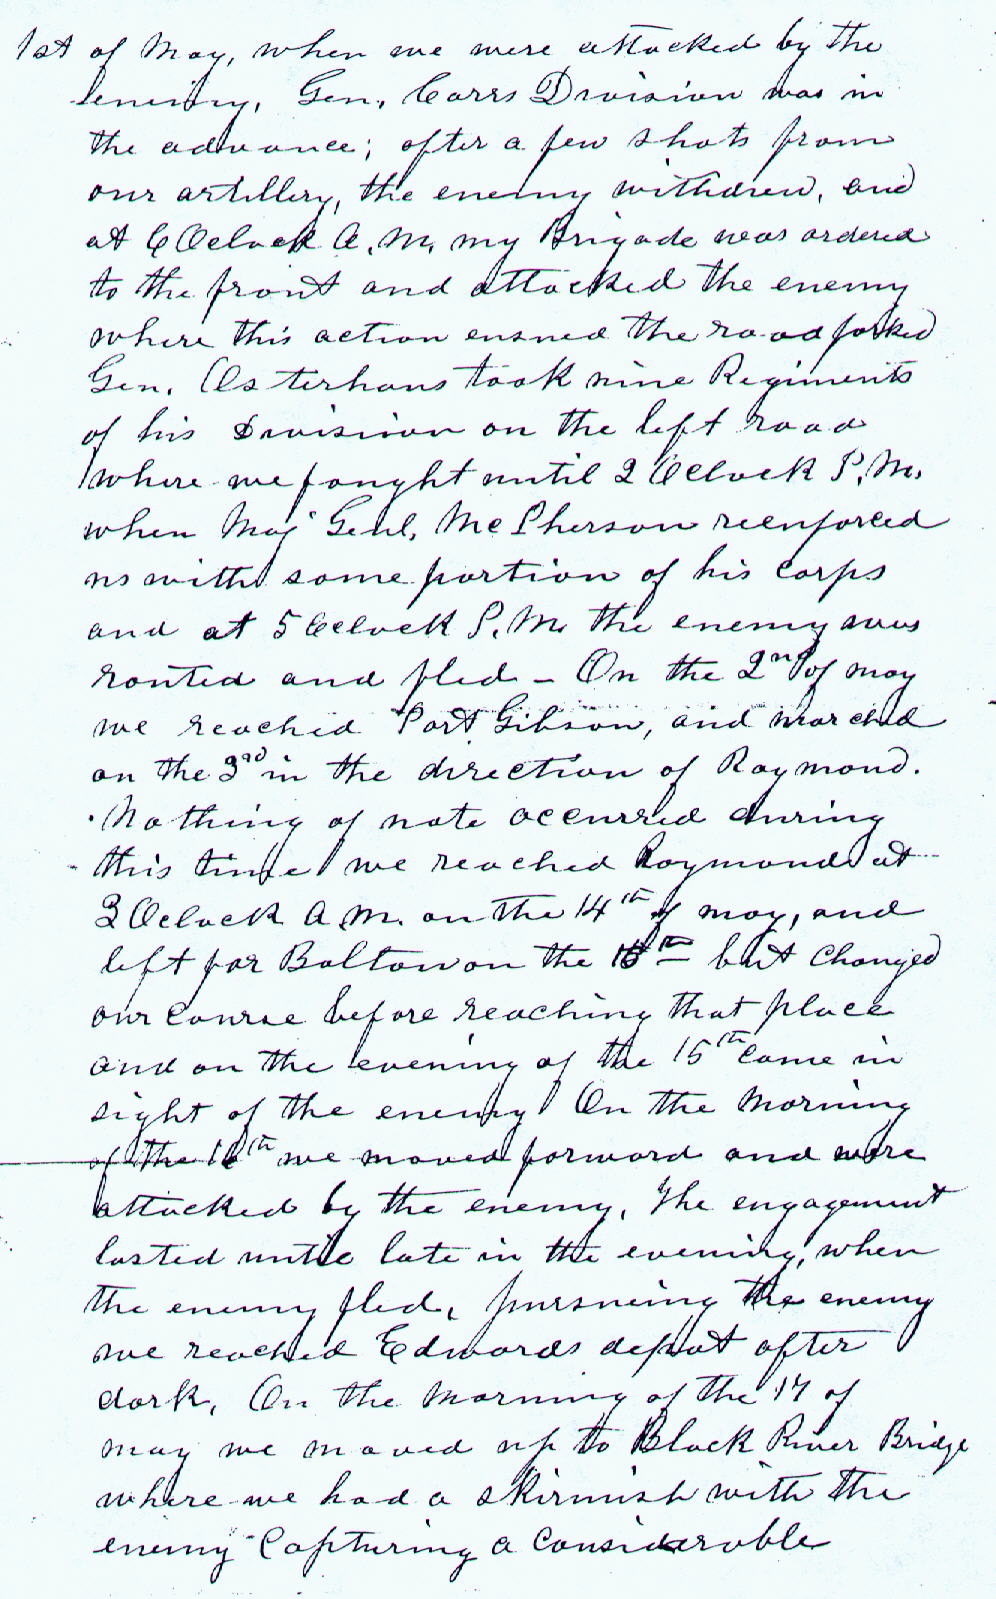 1st of May, when we were attacked by the
enemy, Gen. Carrs Division was in
the advance; after a few shots from
our artillery, the enemy withdrew, and
at 6 Oclock A.M. my Brigade was ordered
to the front and attacked the enemy
where this action ensued the road forked
Gen. Osterhaus took nine Regiments
of his Division on the left road
where we fought until 2 Oclock P.M.
when Maj Genl, McPherson reenforced
us with some portion of his corps
and at 5 Oclock P.M. the enemy was
routed and fled – On the 2nd of may
we reached Port Gibson, and marched
on the 3rd in the direction of Raymond.
Nothing of note occurred during
this time we reached Raymond at
3 Oclock A.M. on the 14th of may, and
left for Bolton on the 15th but changed
our course before reaching that place
and on the evening of the 15th came in
sight of the enemy On the morning
of the 16th we moved forward and were
attacked by the enemy, The engagement
lasted until late in the evening, when
the enemy fled, pursueing the enemy
we reached Edwards depot after
dark, On the morning of the 17 of
may we moved up to Black River Bridge
where we had a skirmish with the
enemy Capturing a Considerable